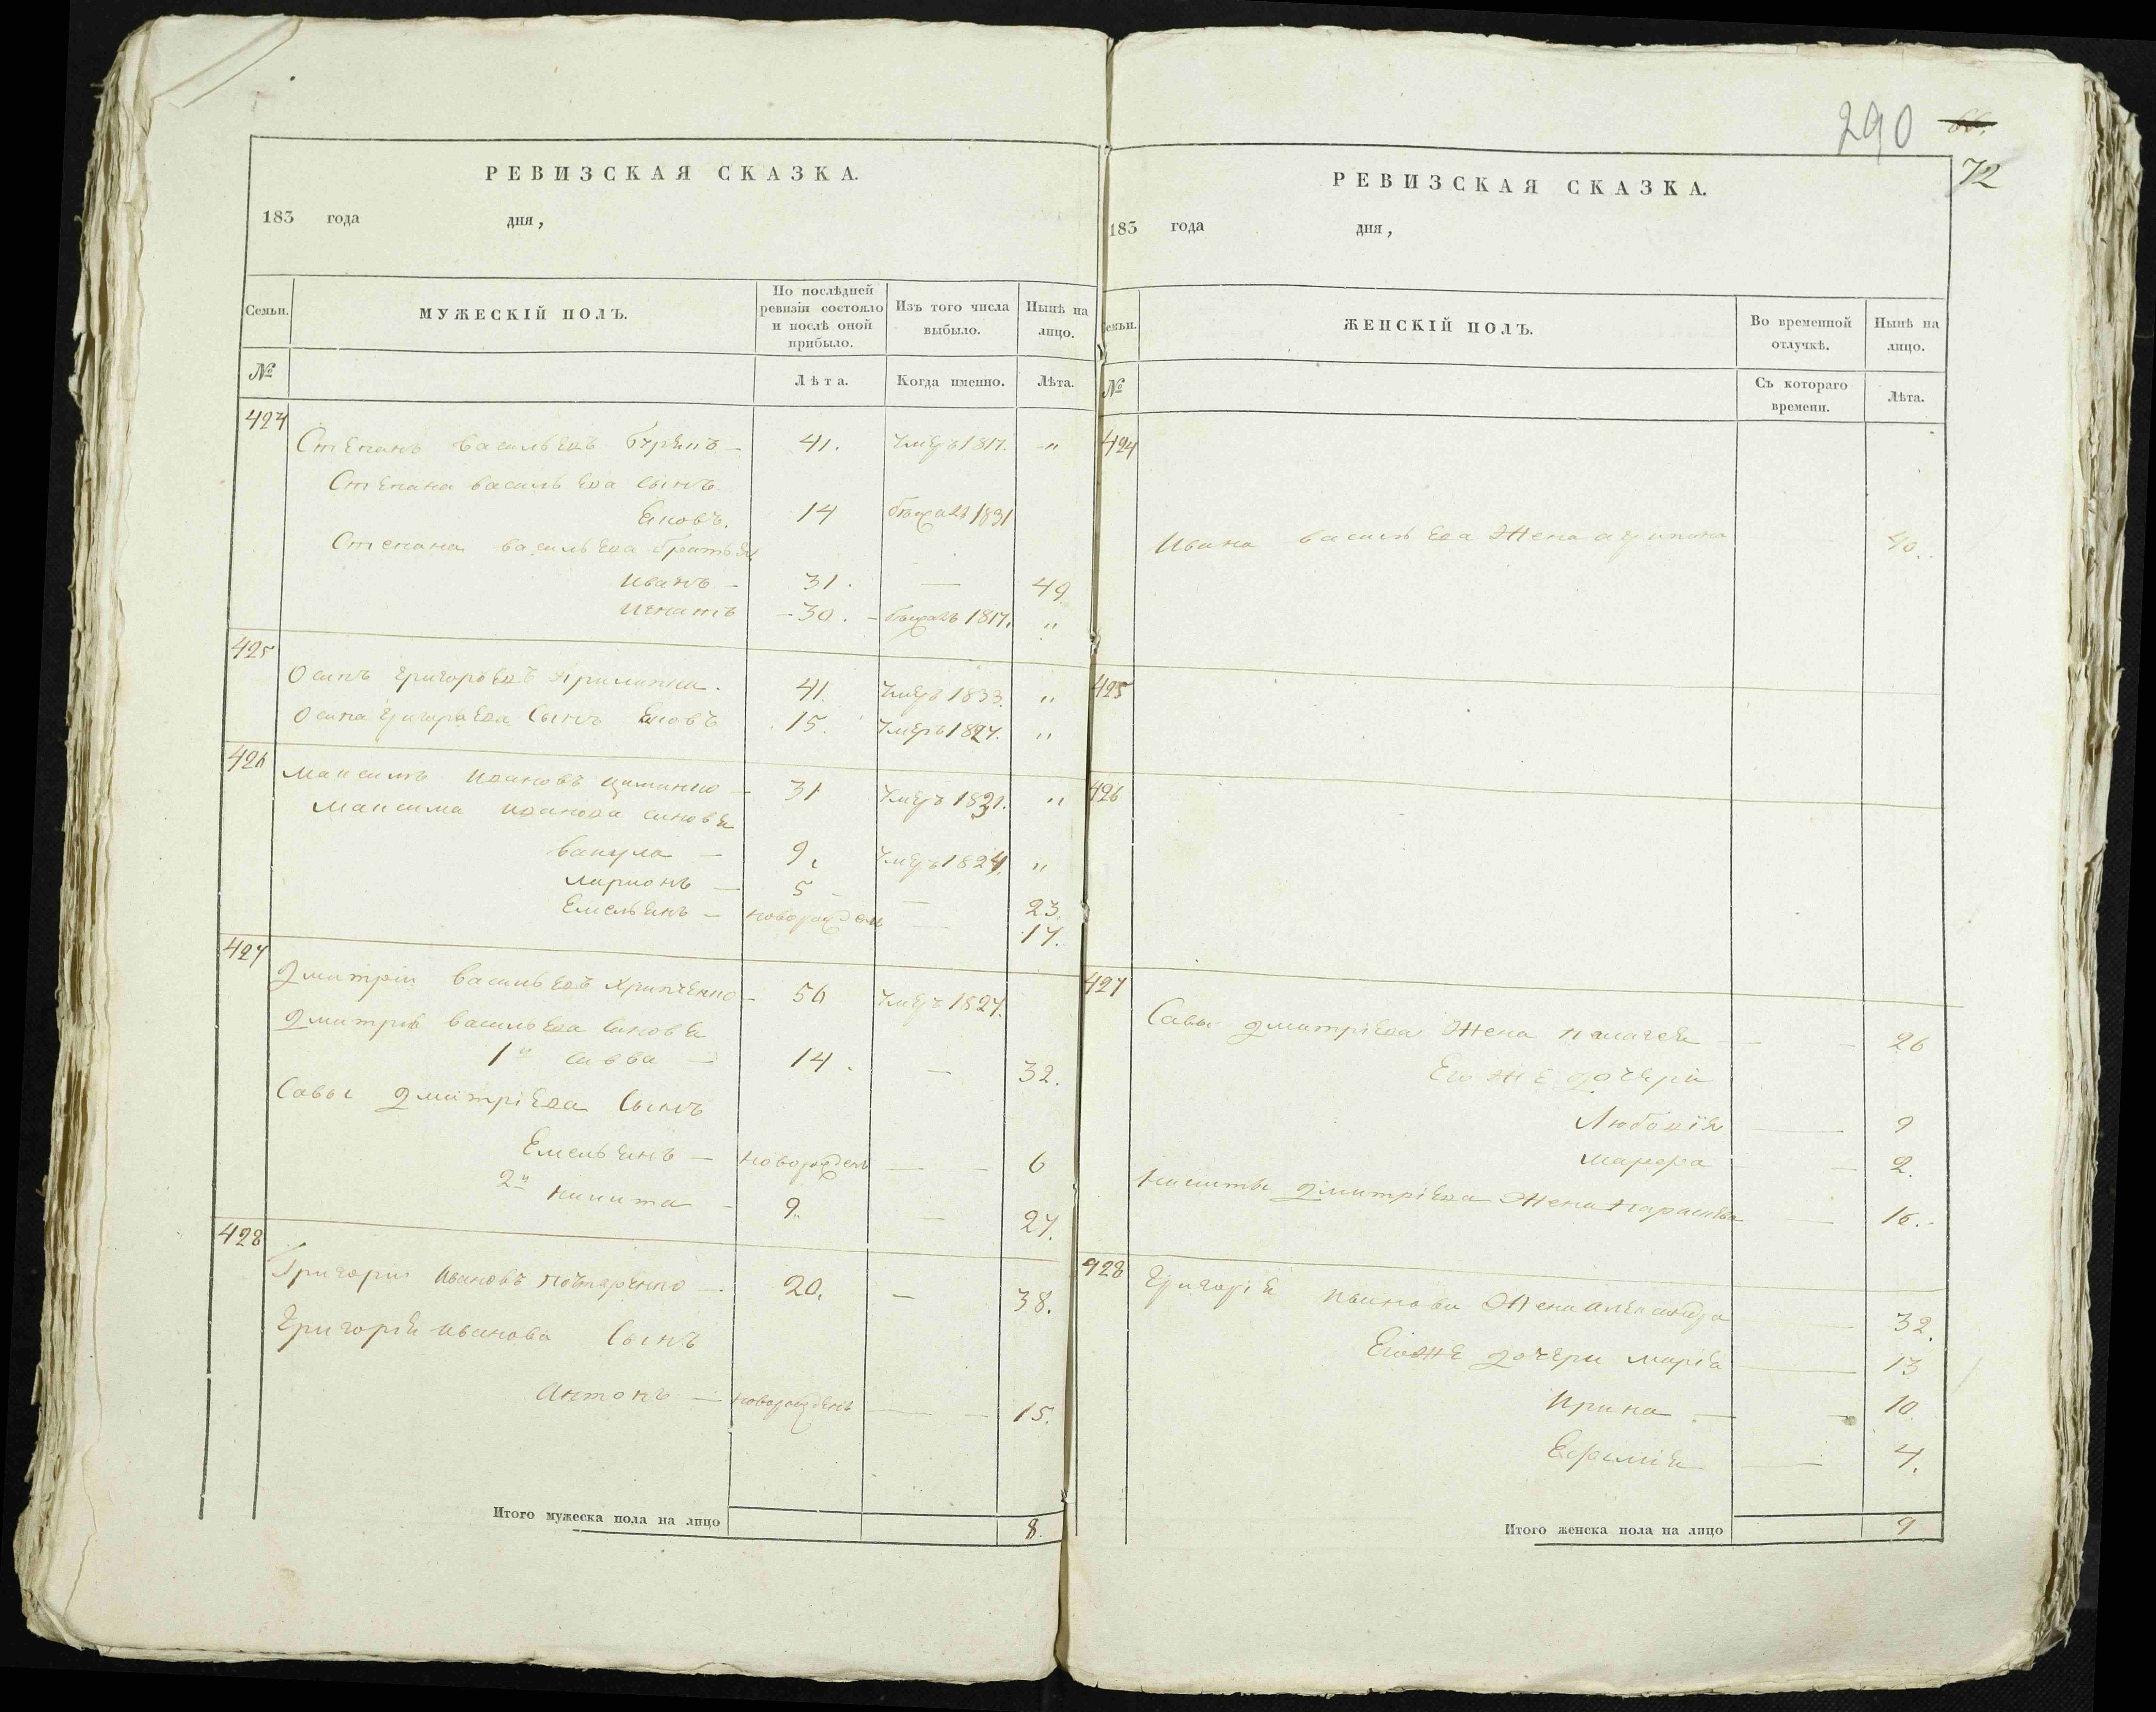 290
66.
72
РЕВИЗСКАЯ СКАЗКА.
183 года дня,
Семьи. МУЖЕСКІЙ ПОЛЪ. По послѣдней ревизіи состояло и послѣ оной прибыло. Изъ того числа выбыло. Нынѣ на лицо.
№ Лѣта. Когда именно. Лѣта.
424
Степанъ васильевъ 41. Умеръ 1817. "
Степана васильева сынъ
Яковъ. 14 бѣжалъ 1831
Степана васильева братья
Иванъ — 31. — 49
Игнатъ — 30. — бѣжалъ 1817. "
425
Осипъ григорьевъ 41. Умеръ 1833. "
Осипа григорьева сынъ Яковъ 15. Умеръ 1827. "
426
Максимъ Ивановъ 31 Умеръ 1831. "
Максима Иванова синовья
вакула — 9. Умеръ 1824. "
Ларионъ — 5 — 23.
Емельянъ — новорожденъ — 17.
427
Дмитрій васильевъ Хринченко — 56 Умеръ 1827.
Дмитрія васильева синовья
1й савва — 14. — 32.
Савы дмитріева Сынъ
Емельянъ — новорожденъ — — 6
2й никита — 9. — 27.
428
Григорій Ивановъ — 20. — 38.
Григорія иванова Сынъ
Антонъ — новорожденъ — — 15.
Итого мужеска пола на лицо 8.
РЕВИЗСКАЯ СКАЗКА.
183 года дня,
Семьи. ЖЕНСКІЙ ПОЛЪ. Во временной отлучкѣ. Нынѣ на лицо.
№ Съ котораго времени. Лѣта.
424
Ивана васильева Жена агрипина 40.
425
426
427
Савы дмитріева Жена пелагея — — 26
Его же дочери
Любовія — 9
марфа — — 2.
никиты дмитріева Жена параскева — 16.
428
григорія иванова Жена александра — 32.
Его же дочери марія — 13
Ирина — — 10
Ефимія — 4.
Итого женска пола на лицо 9